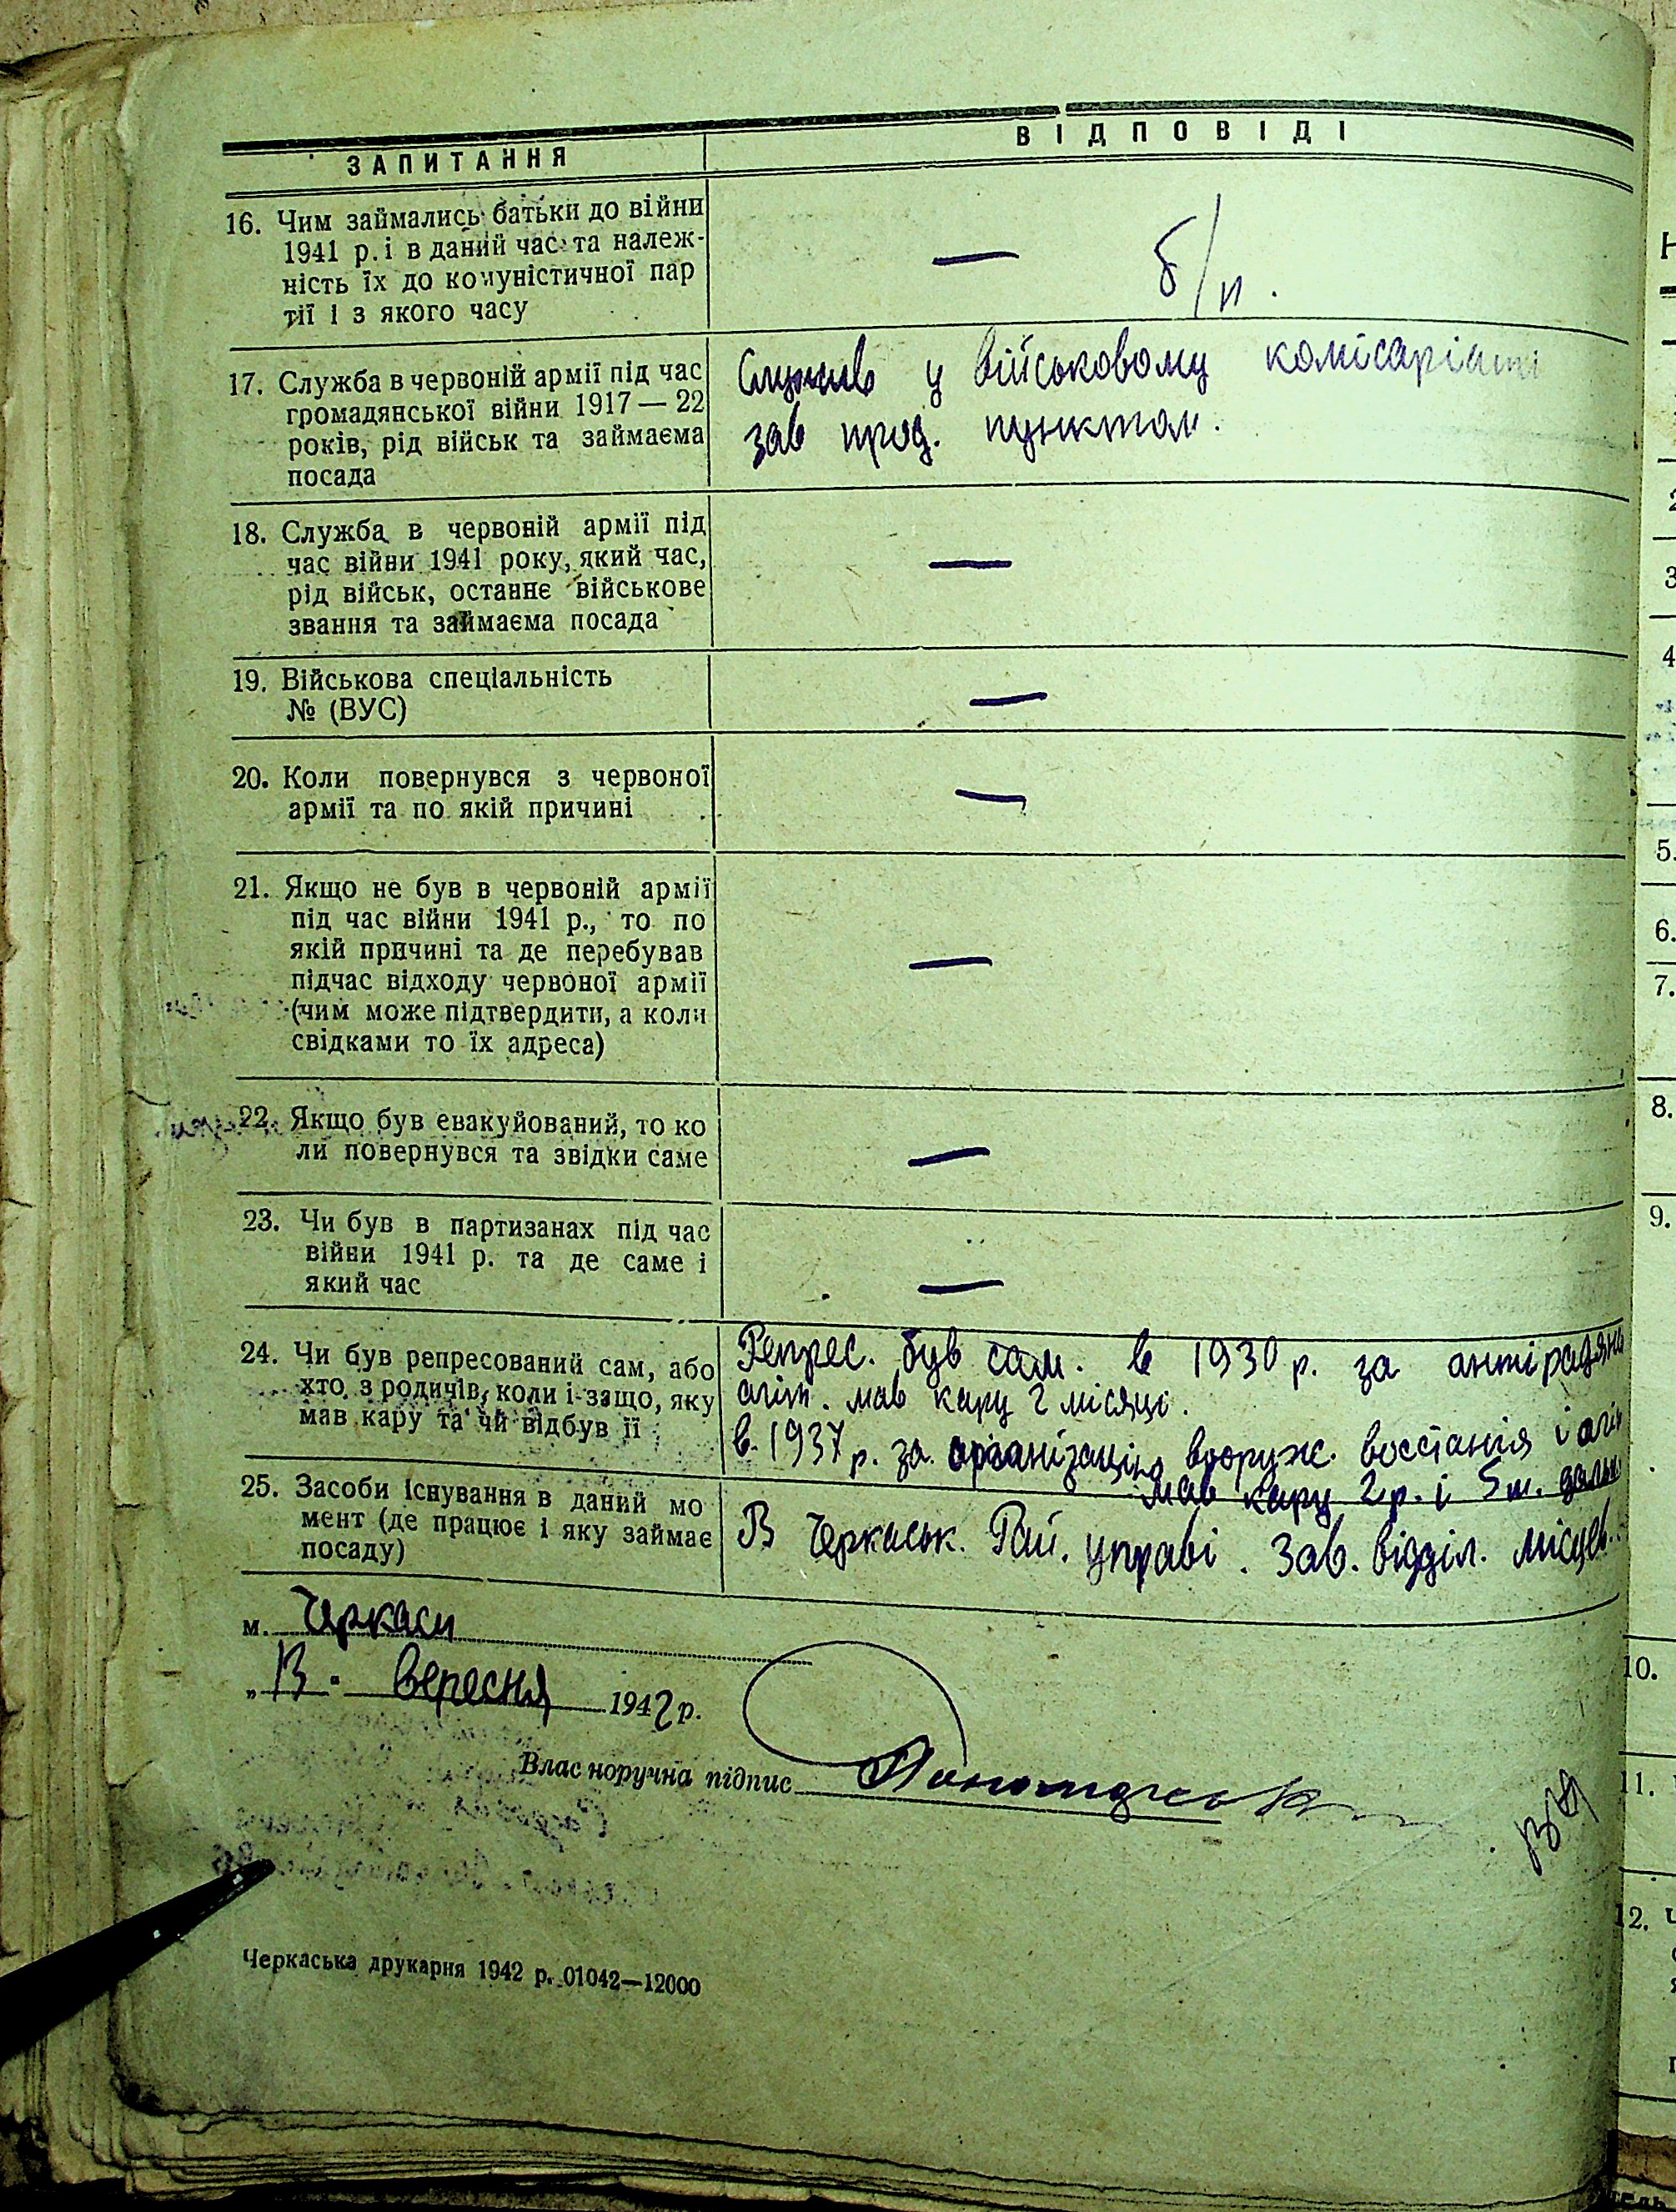 ЗАПИТАННЯ
ВІДПОВІДІ
16. Чим займались батьки до війни
1941 р. і в даний час та належ-
ність їх до комуністичної пар
тії і з якого часу
— б/п.
17. Служба в червоній армії під час
громадянської війни 1917 — 22
років, рід військ та займаєма
посада
Служив у військовому комісаріаті
зав прод. пунктом.
18. Служба в червоній армії під
час війни 1941 року, який час,
рід військ, останнє військове
звання та займаєма посада
—
19. Військова спеціальність
№ (ВУС)
—
20. Коли повернувся з червоної
армії та по якій причині
—
21. Якщо не був в червоній армії
під час війни 1941 р., то по
якій причині та де перебував
підчас відходу червоної армії
(чим може підтвердити, а коли
свідками то їх адреса)
—
22. Якщо був евакуйований, то ко
ли повернувся та звідки саме
—
23. Чи був в партизанах під час
війни 1941 р. та де саме і
який час
—
24. Чи був репресований сам, або
хто з родичів, коли і защо, яку
мав кару та чи відбув її
Репрес. був сам. в 1930 р. за антірадян
агіт. мав кару 2 місяці.
в 1937 р. за організацію вооруж. восстанія і агіт
мав кару 2 р. і 5 м.
25. Засоби існування в даний мо
мент (де працює і яку займає
посаду)
В Черкаськ. Рай. управі. Зав. відділ. місцев.
м. Черкаси
„13" вересня 1942 р.
Власноручна підпис
Черкаська друкарня 1942 р. 01042—12000
5.
6.
7.
8.
9.
10.
11.
12.